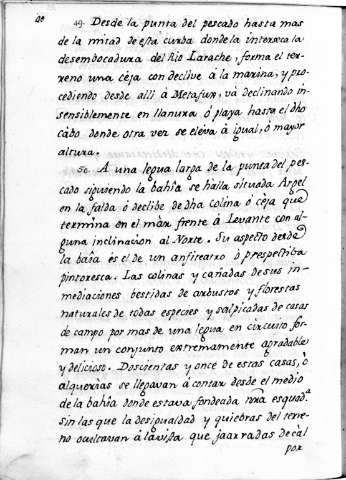 49. Desde la punta del pescado hasta mas
de la mitad de esta curba donde la interseca la
desembocadura del Rio Larache, forma el ter-
reno una céja con declive à la marina, y pro-
cediendo desde alli à Metafux, và declinando in-
sensiblemente en llanura ó playa hasta el dho
cabo donde otra vez se eleva à igual, ó mayor
altura.
50. A una legua larga de la punta del pes-
cado siguiendo la bahia se halla situada Argel
en la falda ó declibe de dha colina ó ceja que
termina en el màr frente à Levante con al-
guna inclinacion al Norte. Su aspecto desde
la baia és el de un anfiteatro ò prespectiba
pintoresca. Las colinas y cañadas de sus in-
mediaciones bestidas de arbustos y florestas
naturales de todas especies y salpicadas de casas
de campo por mas de una legua en circuito for-
man un conjunto extremamente agradable
y delicioso. Doscientas y once de estas casas, ò
alquerias se llegavan à contar desde el medio
de la bahia donde estava fondeada nra esquad.a
sin las que la desigualdad y quiebras del terre-
no ocultavan à la vista que jaarradas de càl
por